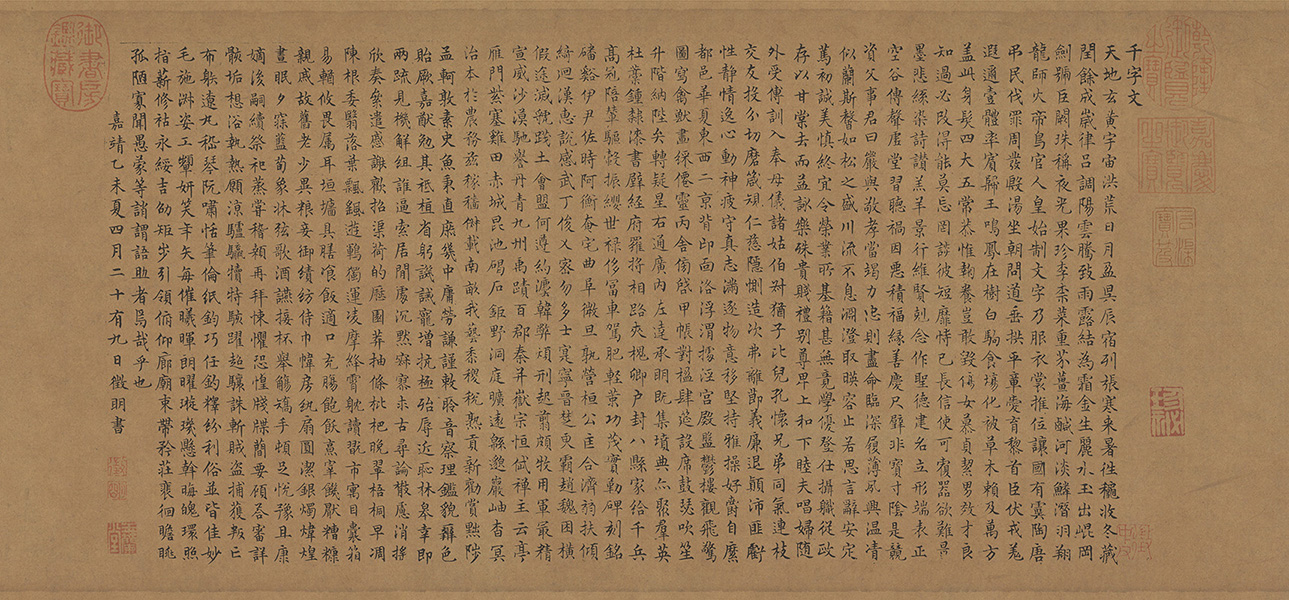 千字文
天地玄黄宇宙洪荒日月盈昃辰宿列張寒來暑往穐收冬藏
閏餘成嵗律吕調陽雲騰致雨露結為霜金生麗水玉出崐岡
劍號巨闕珠稱夜光果珍李柰菜重芥薑海鹹河淡鱗潛羽翔
龍師火帝鳥官人皇始制文字乃服衣裳推位讓國有虞陶唐
弔民伐罪周發殷湯坐朝問道垂拱平章愛育黎首臣伏戎羌
遐邇壹體率賔歸王鳴鳳在樹白駒食場化被草木賴及萬方
盖此身髮四大五常恭惟鞠養豈敢毀傷女慕貞潔男效才良
知過必改得能莫忘罔談彼短靡恃己長信使可覆器欲難量
墨悲絲染詩讃羔羊景行維賢剋念作聖德建名立形端表正
空谷傳聲虚堂習聽禍因惡積福緣善慶尺璧非寶寸陰是競
資父事君曰嚴與敬孝當竭力忠則盡命臨深履薄夙興温凊
似蘭斯馨如松之盛川流不息淵澄取暎容止若思言辭安定
篤初誠美慎終宜令榮業所基籍甚無竟學優登仕攝職從政
存以甘棠去而益詠樂殊貴賤禮别尊卑上和下睦夫唱婦隨
外受傅訓入奉母儀諸姑伯叔猶子比兒孔懷兄弟同氣連枝
交友投分切磨箴規仁慈隱惻造次弗離節義廉退顛沛匪虧
性静情逸心動神疲守真志滿逐物意移堅持雅操好爵自縻
都邑華夏東西二京背邙面洛浮渭據涇宫殿盤鬱樓觀飛驚
圖寫禽獸畫綵僊靈丙舍傍啓甲帳對楹肆筵設席鼓瑟吹笙
升階納陛弁轉疑星右通廣内左達承明既集墳典亦聚羣英
杜稾鍾隸漆書壁經府羅將相路俠槐卿户封八縣家給千兵
高冠陪輦驅轂振纓世禄侈富車駕肥輕策功茂實勒碑刻銘
磻谿伊尹佐時阿衡奄宅曲阜微旦孰營桓公匡合濟弱扶傾
綺迴漢惠說感武丁俊乂密勿多士寔寧晉楚更霸趙魏困横
假途滅虢踐土會盟何遵約灋韓弊煩刑起翦頗牧用軍最精
宣威沙漠馳譽丹青九州禹蹟百郡秦并嶽宗恒岱禪主云亭
雁門紫塞雞田赤城昆池碣石鉅野洞庭曠遠緜邈巖岫杳冥
治本於農務兹稼穡俶載南畝我藝黍稷稅熟貢新勸賞黜陟
孟軻敦素史魚秉直庶幾中庸勞謙謹敕聆音察理鑑貌辨色
貽厥嘉猷勉其祗植省躬譏誡寵增抗極殆辱近恥林皋幸即
兩疏見機解組誰逼索居閒處沉黙寂寥求古尋論散慮消摇
欣奏累遣慼謝歡招渠荷的歷園莽抽條枇杷晚翠梧桐早凋
陳根委翳落葉飄颻遊鵾獨運凌摩絳霄耽讀翫市寓目囊箱
易輶攸畏属耳垣墻具膳飡飯適口充腸飽飫烹宰饑厭糟糠
親戚故舊老少異粮妾御績紡侍巾帷房紈扇圓潔銀燭煒煌
晝眠夕寐藍筍象牀弦歌酒讌接杯舉觴矯手頓足恱豫且康
嫡後嗣續祭祀蒸嘗稽顙再拜悚懼恐惶牋牒簡要顧答審詳
骸垢想浴執熱願凉驢騾犢特駭躍超驤誅斬賊盗捕獲叛亡
布射遼丸嵇琴阮嘯恬筆倫紙鈞巧任釣釋紛利俗並皆佳妙
毛施淑姿工顰妍笑年矢每催曦暉朗曜璇璣懸斡晦魄環照
指薪修祜永綏吉劭矩步引領俯仰廊廟束帶矜莊裵徊瞻眺
孤陋寡聞愚蒙等誚謂語助者焉哉乎也
嘉靖乙未夏四月二十有九日徵明書
御書房鑑藏寶